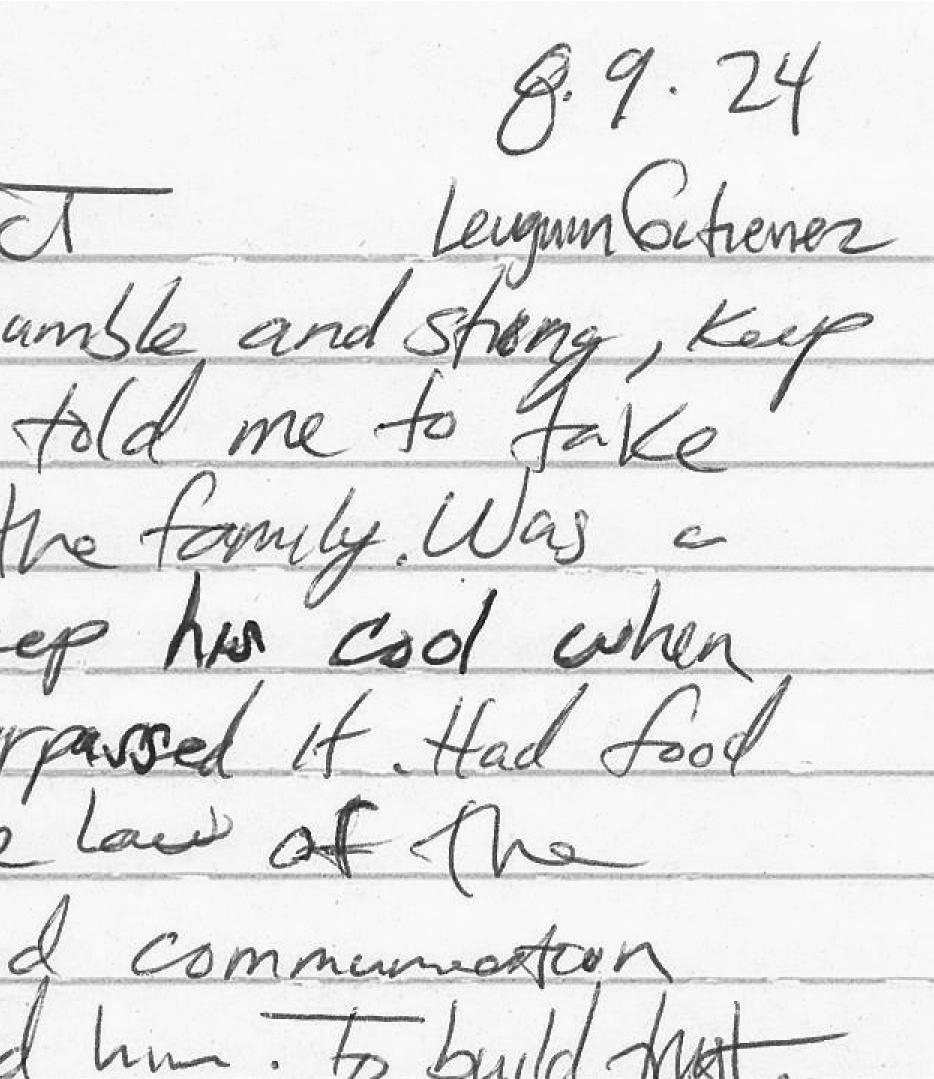 8.9.24
ct Leuguim Gutierrez
umble and strong, Keep
told me to take
the family. Was a
ep his cool when
rpassed it. Had food
e law of the
d communication
d him. To build that.